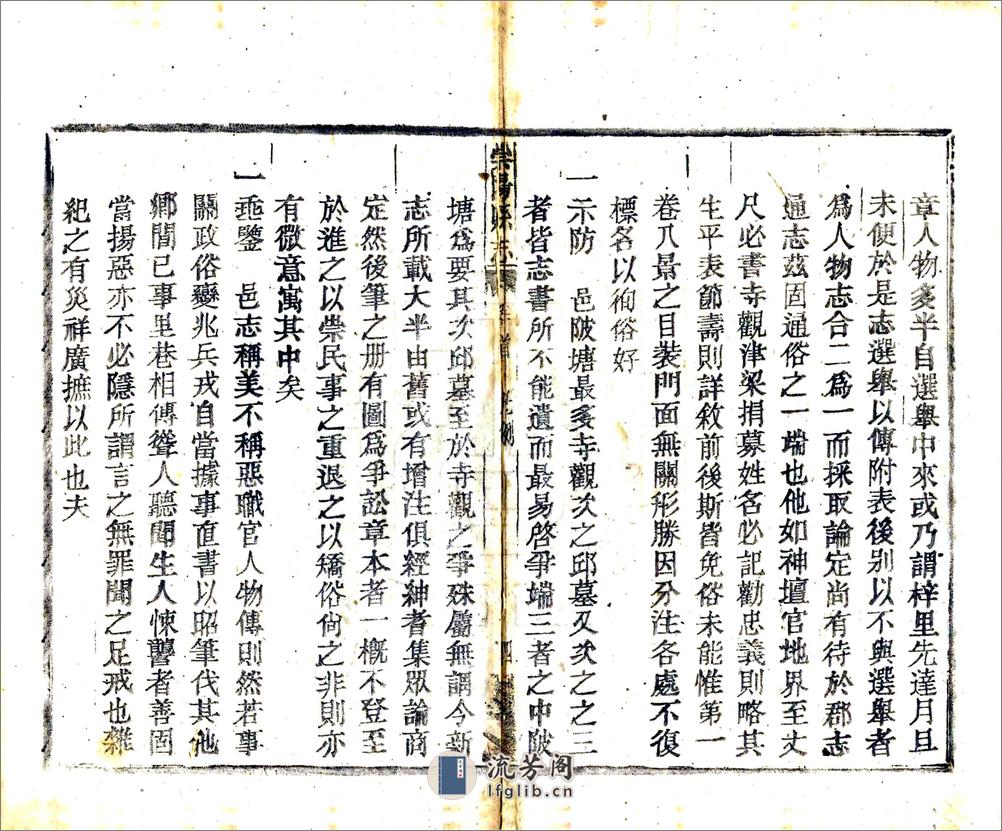 章人物多半自選舉中來或乃謂梓里先達月旦
未便於是志選舉以傳附表後别以不與選舉者
爲人物志合二爲一而採取論定尚有待於郡志
通志茲固通俗之一端也他如神壇官地界至丈
尺必書寺觀津梁捐募姓名必記勸忠義則略其
生平表節壽則詳敘前後斯皆免俗未能惟第一
卷八景之目裝門面無關形勝因分注各處不復
標名以徇俗好
一示防 邑陂塘最多寺觀次之邱墓又次之之三
者皆志書所不能遺而最易啓爭端三者之中陂
崇陽縣志 卷首 凡例 四
塘爲要其次邱墓至於寺觀之爭殊屬無謂今新
志所載大半由舊或有增注俱經紳耆集眾論商
定然後筆之册有圖爲爭訟章本者一概不登至
於進之以崇民事之重退之以矯俗尚之非則亦
有微意寓其中矣
一垂鑒 邑志稱美不稱惡職官人物傳則然若事
關政俗變兆兵戎自當據事直書以昭筆伐其他
鄉閭已事里巷相傳聳人聽聞生人悚讋者善固
當揚惡亦不必隱所謂言之無罪聞之足戒也雜
紀之有災祥廣摭以此也夫
流芳阁
lfglib.cn